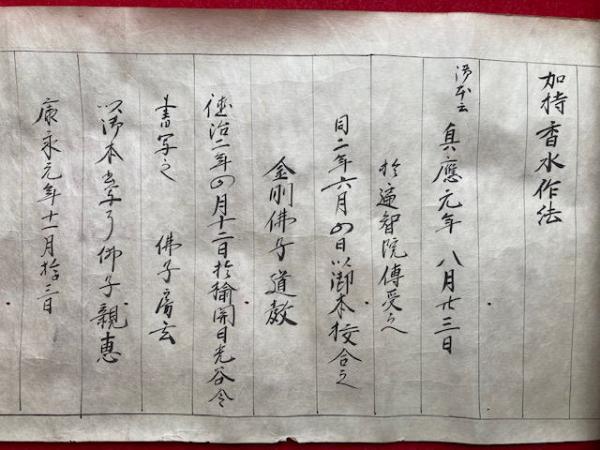 加持香水作法
御本云 真應元年八月廿三日
於遍智院傳受之
同二年六月四日以御本校合之
金剛佛子道教
徳治二年四月十二日於 開日光谷令
書写之 佛子房玄
以御本書写了佛子親恵
康永元年十一月拾三日